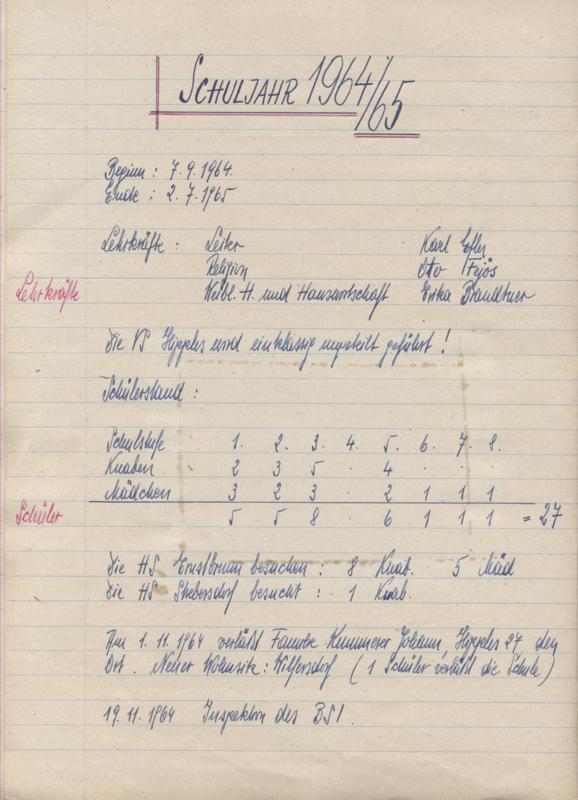 SCHULJAHR 1964/65
Beginn : 7.9.1964.
Ende : 2.7.1965
Lehrkräfte : Leiter Karl
Religion Otto Fejös
Lehrkräfte
Weibl. H. und Hauswirtschaft Erika Brandtner
Die VS Hipples wird einklassig ungeteilt geführt !
Schülerstand :
Schulstufe 1. 2. 3. 4. 5. 6. 7. 8.
Knaben 2 3 5 . 4 . . .
Mädchen 3 2 3 . 2 1 1 1
Schüler
5 5 8 . 6 1 1 1 = 27
Die HS Ernstbrunn besuchen : 8 Knab. 5 Mäd
Die HS Strebersdorf besucht : 1 Knab.
Am 1.11.1964 verläßt Familie Kummerer Johann, Hipples 27 den
Ort. Neuer Wohnsitz : Wilfersdorf (1 Schüler verläßt die Schule)
19.11.1964 Inspektion des BSI.